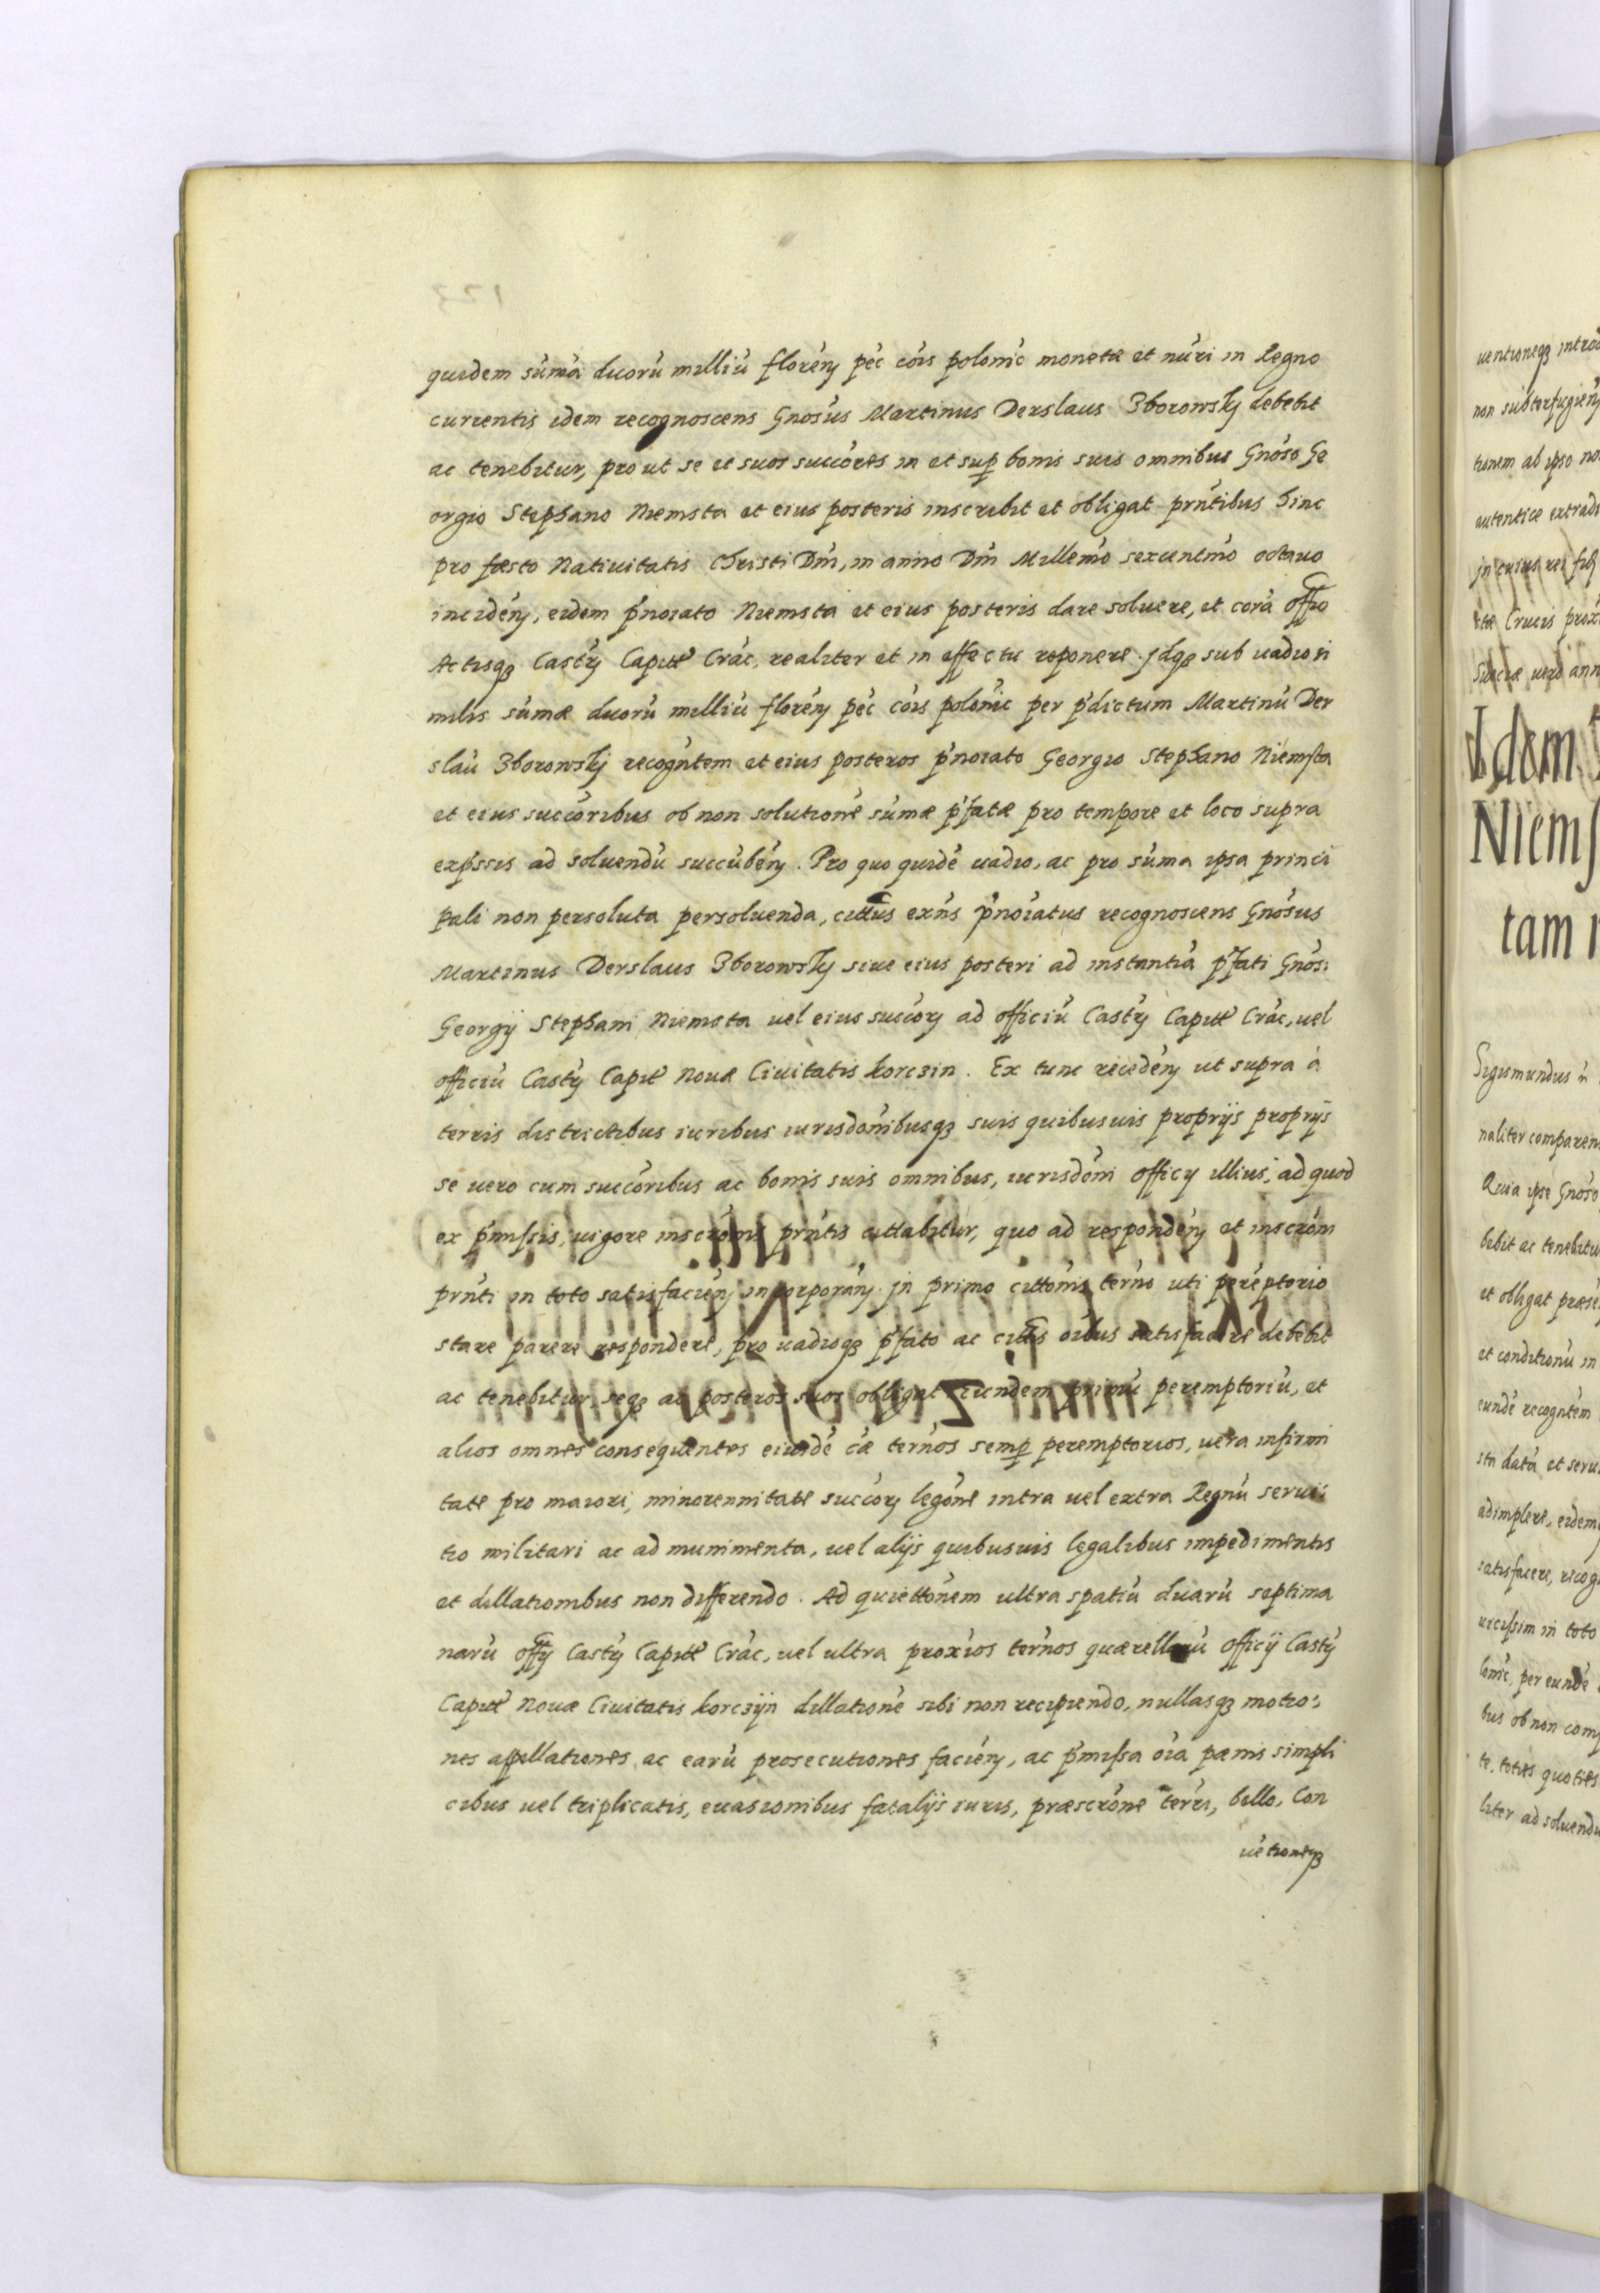 quidem sum̃a duorũ milliũ floreñ pec̃ cõis polonic̃ monetæ et nũri in Regno
currentis idem recognoscens Gnosũs Martinus Derslaus Zborowskÿ debebit
ac tenebitur, prout se et suos succores̃ in et sup bonis suis omnibus Gnoso Ge
orgio Stephano Niemsta et eius posteris inscribit et obligat prñtibus hinc
pro fæsto Nativitatis Christi Dñi, in anno Dñi Millemõ sexcenlmõ octavo
incideñ, eidem p̃noiato Niemsta et eius posteris dare soluere, et corã offio
Actisqꝫ Castrꝫ Capitꝉ Crac̃, realiter et in effectu reponere. jdqꝫ sub uadio si
milis sum̃æ duorũ milliũ floreñ pec̃ cõis polonic̃ per p̃dictum Martinũ Der
slaũ Zborowskÿ recogñtem et eius posteros p̃noiato Georgio Stephano Niemsta
et eius succõribus ob non solutionẽ sum̃æ p̃fatæ pro tempore et loco supra
exp̃ssis ad soluendũ succũbeñ. Pro quo quidẽ uadio, ac pro sum̃a ipsa princi
pali non persoluta persoluenda, cittũs exñs p̃noiatus recognoscens Gnosũs
Martinus Derslaus Zborowskÿ siue eius posteri ad instantiã p̃fati Gnosĩ
Georgij Stephani Niemsta uel eius succorꝫ ad officiũ Castrꝫ Capitꝉ Crac̃, uel
officiũ Castrꝫ Capitꝉ Nouæ Ciuitatis korczin. Ex tunc recedeñ ut supra á
terris districtibus iuribus iurisdonibusqꝫ suis quibusuis proprijs proprijs
se uero cum succõribus ac bonis suis omnibus, iurisdõni officÿ illius, ad quod
ex p̃missis, uigore inscrõnis prñtis cittabitur, quo ad respondeñ et inscrõni
prñti in toto satisfacieñ incorporañ. jn primo cittõnis terño uti perẽptorio
stare parere respondere, pro uadioqꝫ p̃fato ac cittis oĩbus satisfacere debebit
ac tenebitur, seqꝫ ac posteros suos obligat eundem primũ peremptoriũ, et
alios omnes consequentes eiusdẽ cæ terños semp peremptorios, uera infirmi
tate pro maiori, minorennitate succorꝫ legõne intra uel extra Regnũ serui
tio militari ac ad munimenta, uel alijs quibusuis legalibus impedimentis
et dillationibus non differendo. Ad quiettõnem ultra spatiũ duarũ septima
narũ offÿ Castrꝫ Capitꝉ Crac̃, uel ultra proxĩos terños quærellarũ officij Castrꝫ
Capitꝉ Nouæ Ciuitatis korczijn dillationẽ sibi non recipiendo, nullasqꝫ motio:
nes appellationes, ac earũ prosecutiones facieñ, ac p̃missa oĩa pænis simpli
cibus uel triplicatis, euasionibus fatalijs iuris, præscrõne terrꝫ, bello, Con
uẽtioneqꝫ
uentioneqꝫ
non subterfugieñ
tionem ab ipso
autentice
jn cuius rei
Crucis
Sueciæ uero
Idem
Niems
tam
Sigismundus
naliter
Quia ipse Gnoso
bebit ac tenebitur
et obligat
et conditionũ in
eundẽ recogñtem
sta datã et
adimplere, eidem
satisfacere,
uicissim in toto
lonic̃, per eundẽ
bus ob non
te, toties quoties
liter ad soluendũ